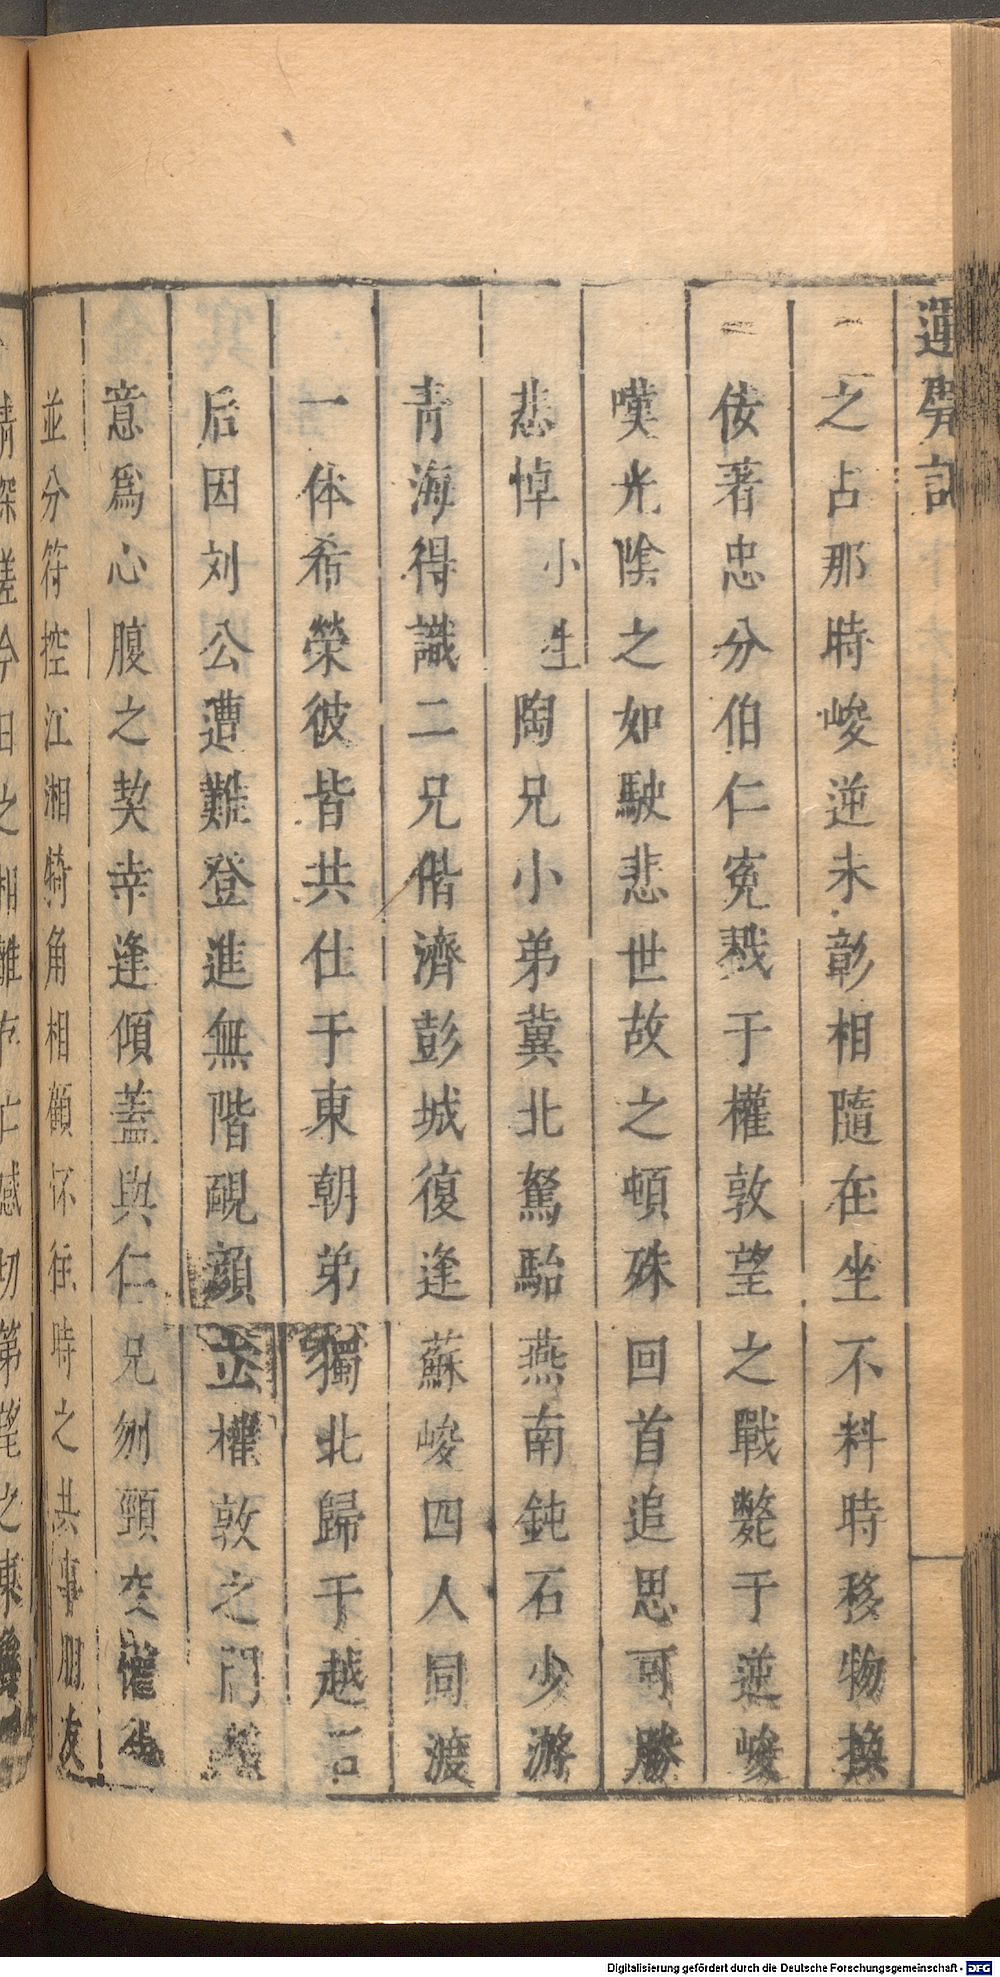 運甓記
之占那時峻逆未彰相隨在坐不料時移物換
二
侫著忠分伯仁寃戮于權敦望之戰斃于逆峻
二
嘆光陰之如駛悲世故之頓殊回首追思可勝
悲悼小生陶兄小弟冀北駑駘燕南鈍石少游
青海得識二兄偕濟彭城復逢蘇峻四人同渡
一体希榮彼皆共仕于東朝弟獨北歸于越石
后因刘公遭難登進無階覥顔正權敦之門
意為心腹之契幸逢傾蓋與仁兄刎頸交
並分符控江湘犄角相顧怀徃時之共事朋友
情深嗟今日之相離存亡感切第
Digitalisierung gefördert durch die Deutsche Forschungsgemeinschaft - DFG